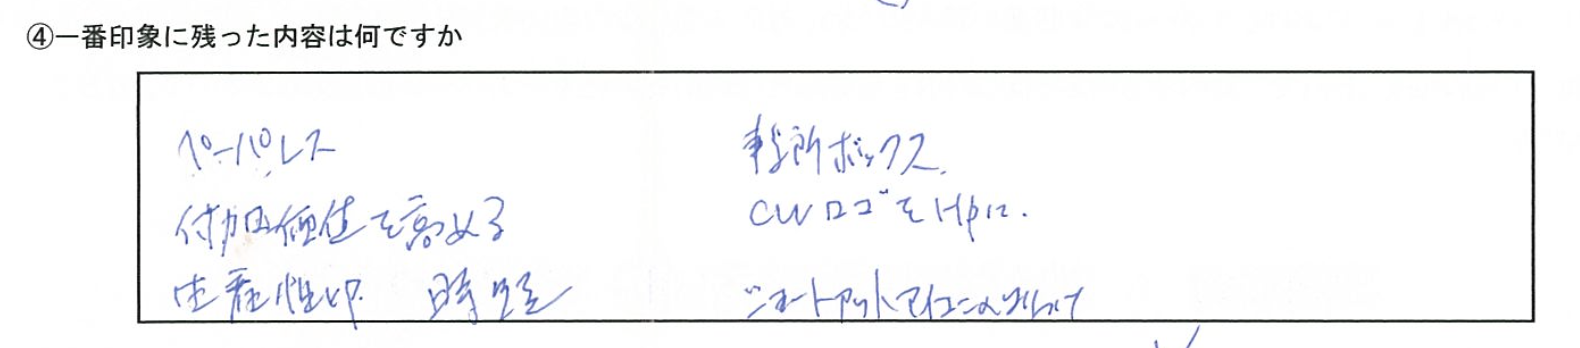 ④一番印象に残った内容は何ですか
ペーパレス
付加価値を高める
生産性UP. 時短
事務所ボックス.
CWロゴをHPに.
ショートアットアイコン